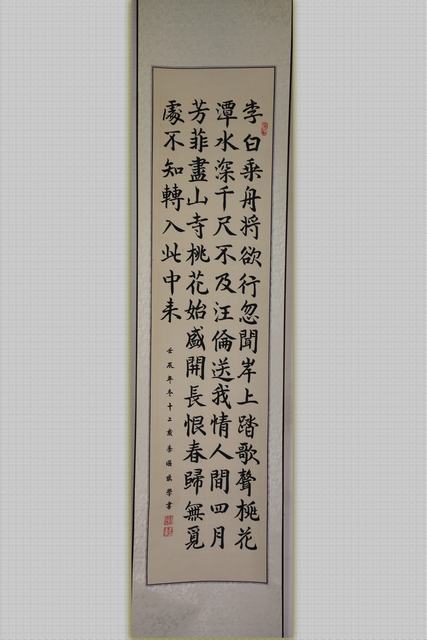 李白乘舟将欲行忽聞岸上踏歌聲桃花
潭水深千尺不及汪倫送我情人間四月
芳菲盡山寺桃花始盛開長恨春歸無覓
處不知轉入此中来
壬辰年冬十二歲李學書